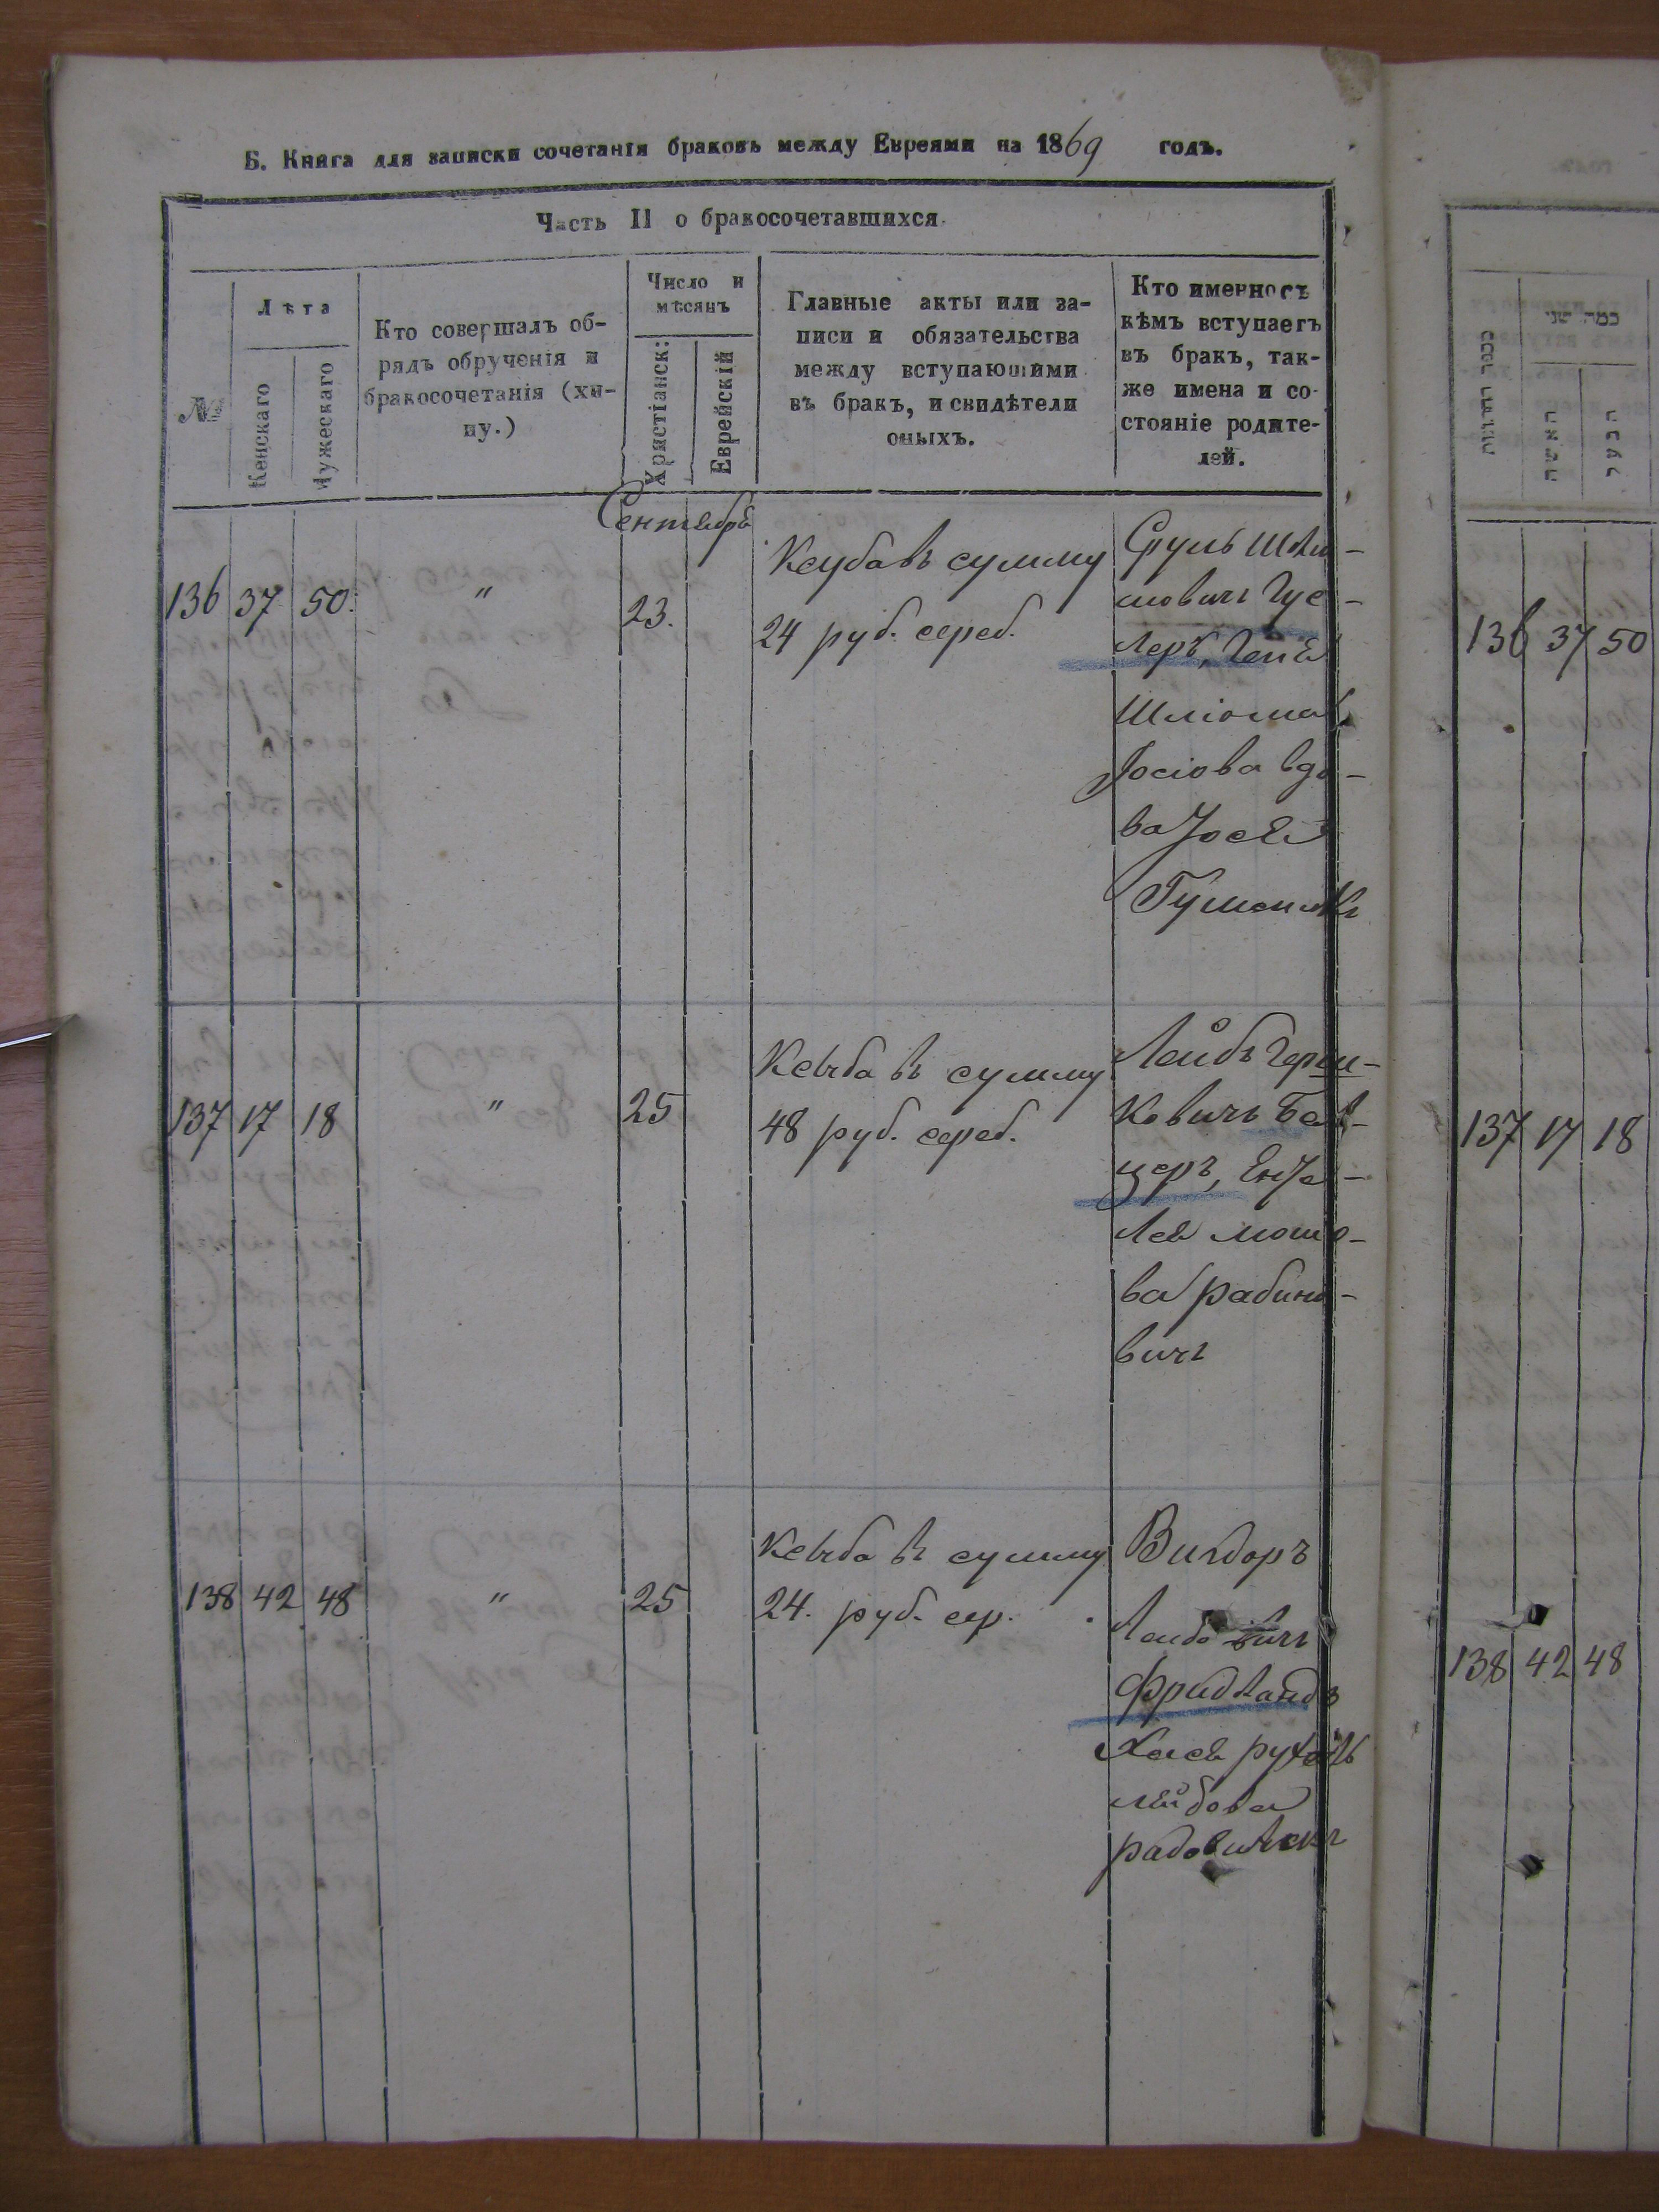 Б. Книга для записки сочетанія браковъ между Евреями на 1869 годъ.
Часть II о бракосочетавшихся.
№
Лѣта
Женскаго
Мужескаго
Кто совершалъ об-
рядъ обрученія и
бракосочетанія (хи-
пу.)
Число и
мѣсяцъ
Христіанск:
Еврейскій
Главные акты или за-
писи и обязательства
между вступающими
въ бракъ, и свидѣтели
оныхъ.
Кто именно съ
кѣмъ вступаетъ
въ бракъ, так-
же имена и со-
стояніе родите-
лей.
Сентябрь
136 37 50. " 23.
Ксуба въ сумму
24 руб. сереб.
Сруль Шлио-
мовичъ Гус-
леръ, Геня
Шліома
Іосіова вдо-
ва
137 17 18 " 25
Ксыба въ сумму
48 руб. сереб.
Лейбъ Герш-
ковичъ
церъ,
мошо-
ва рабино-
вичъ
138 42 48 " 25
Ксыба въ сумму
24. руб. сер.
Вигдоръ
Лейбовичъ
Фридландъ
Хася рухль
лейбова
כמה שני
האשה
הבעל
136 37 50
137 17 18
138 42 48